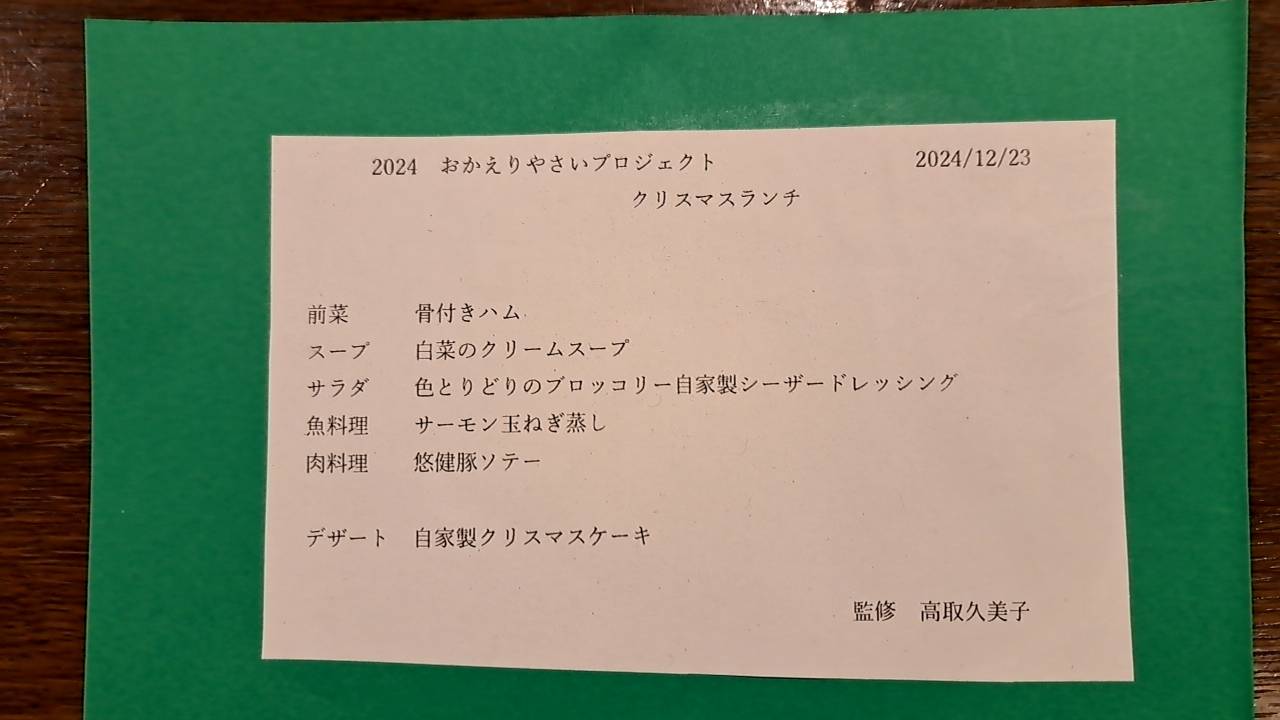 2024　おかえりやさいプロジェクト　2024/12/23
クリスマスランチ
前菜　骨付きハム
スープ　白菜のクリームスープ
サラダ　色とりどりのブロッコリー自家製シーザードレッシング
魚料理　サーモン玉ねぎ蒸し
肉料理　悠健豚ソテー
デザート　自家製クリスマスケーキ
監修　高取久美子